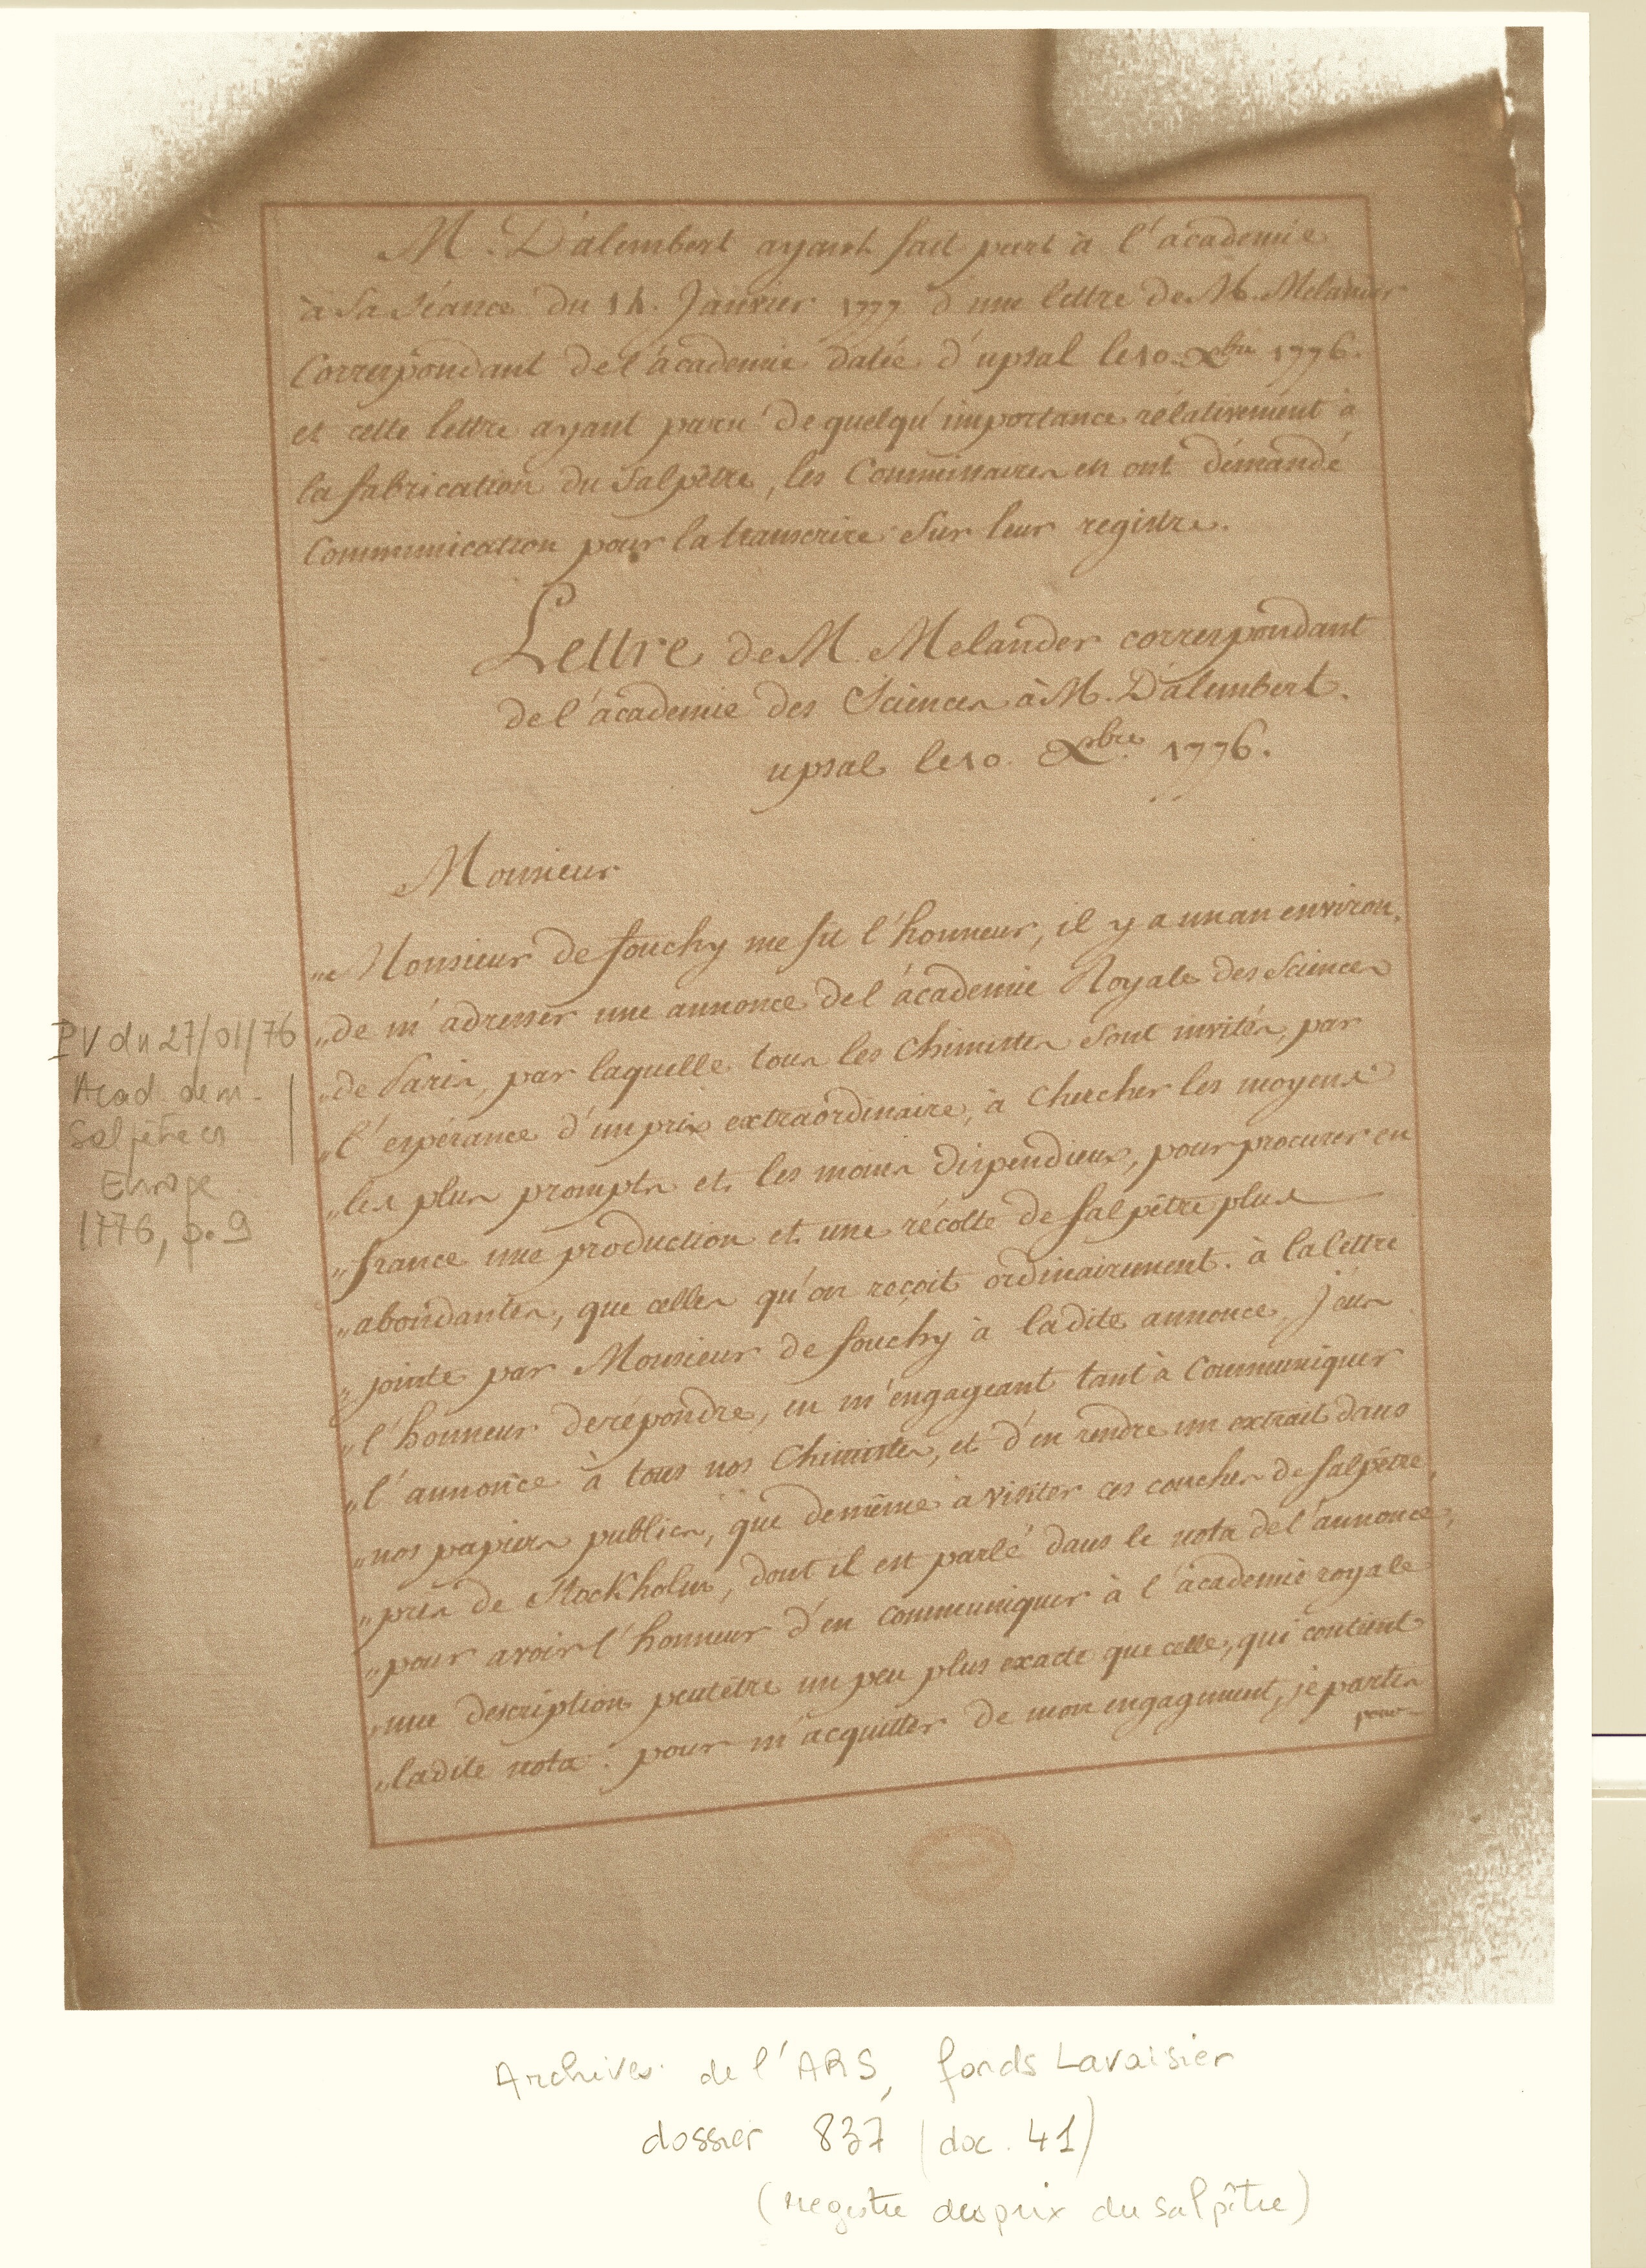 M. D'alembert ayant fait part à l'académie
à Sa Séance du 14. Janvier 1777 d'une lettre de M. Melander
Correspondant de l'académie datée d'upsal le 10. Xbre 1776.
et cette lettre ayant paru de quelqu'importance rélativement à
la fabrication du Salpêtre, les Commissaires en ont démandé
Communication pour la transcrire Sur leur registre.
Lettre de M. Melander correspondant
de l'académie des Sciences à M. D'alembert.
upsal le 10. Xbre 1776.
Monsieur
„ Monsieur de fouchy me fit l'honneur, il y a un an environ,
„ de m'adresser une annonce de l'académie Royale des Sciences
„ de Paris, par laquelle tous les Chimistes Sont invités, par
„ l'espérance d'un prix extraordinaire, à Chercher les moyens
„ les plus prompts et les moins dispendieux, pour procurer en
„ france une production et une récolte de Salpêtre plus
„ abondantes, que celles qu'on reçoit ordinairement. à la lettre
„ jointe par Monsieur de fouchy à ladite annonce, j'eus
„ l'honneur de répondre, en m'engageant tant à Communiquer
„ l'annonce à tous nos Chimistes, et d'en rendre un extrait dans
„ nos papiers publics, que de même à visiter ces couches de Salpêtre,
„ près de Stockholm, dont il est parlé dans le nota de l'annonce,
„ pour avoir l'honneur d'en communiquer à l'académie royale
„ une description peutêtre un peu plus exacte que celle, qui contient
„ ladite nota. pour m'acquitter de mon engagement, je partis
pour
PV du 27/01/76
Acad. dem.
Salpêtre en
Europe
1776, p. 9
Archives de l'ARS, fonds Lavoisier
dossier 837 (doc. 41)
(registre des prix du salpêtre)